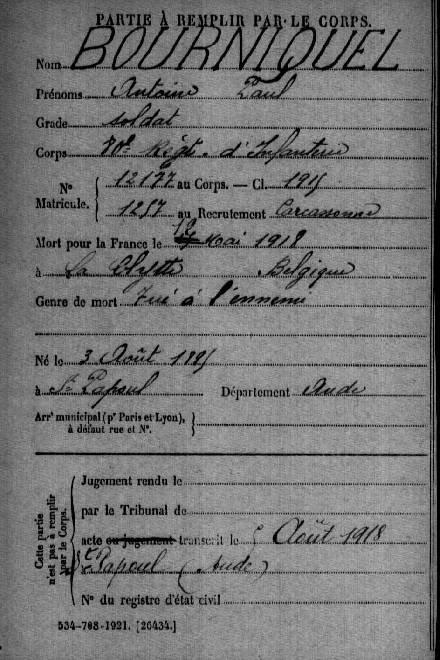 PARTIE À REMPLIR PAR LE CORPS.
Nom BOURNIQUEL
Prénoms Antoine Paul
Grade soldat
Corps 70e Régt. d'Infanterie
Nº Matricule. 12177 au Corps. — Cl. 1915
1257 au Recrutement Carcassonne
Mort pour la France le Mai 1918
à La Clytte Belgique
Genre de mort Tué à l'ennemi
Né le 3 Août
à St Papoul Département Aude
Arrt municipal (pr Paris et Lyon),
à défaut rue et Nº.
Cette partie n'est pas à remplir par le Corps.
Jugement rendu le
par le Tribunal de
acte ou jugement transcrit le Août 1918
St Papoul (Aude)
Nº du registre d'état civil
534-708-1921. [26434.]